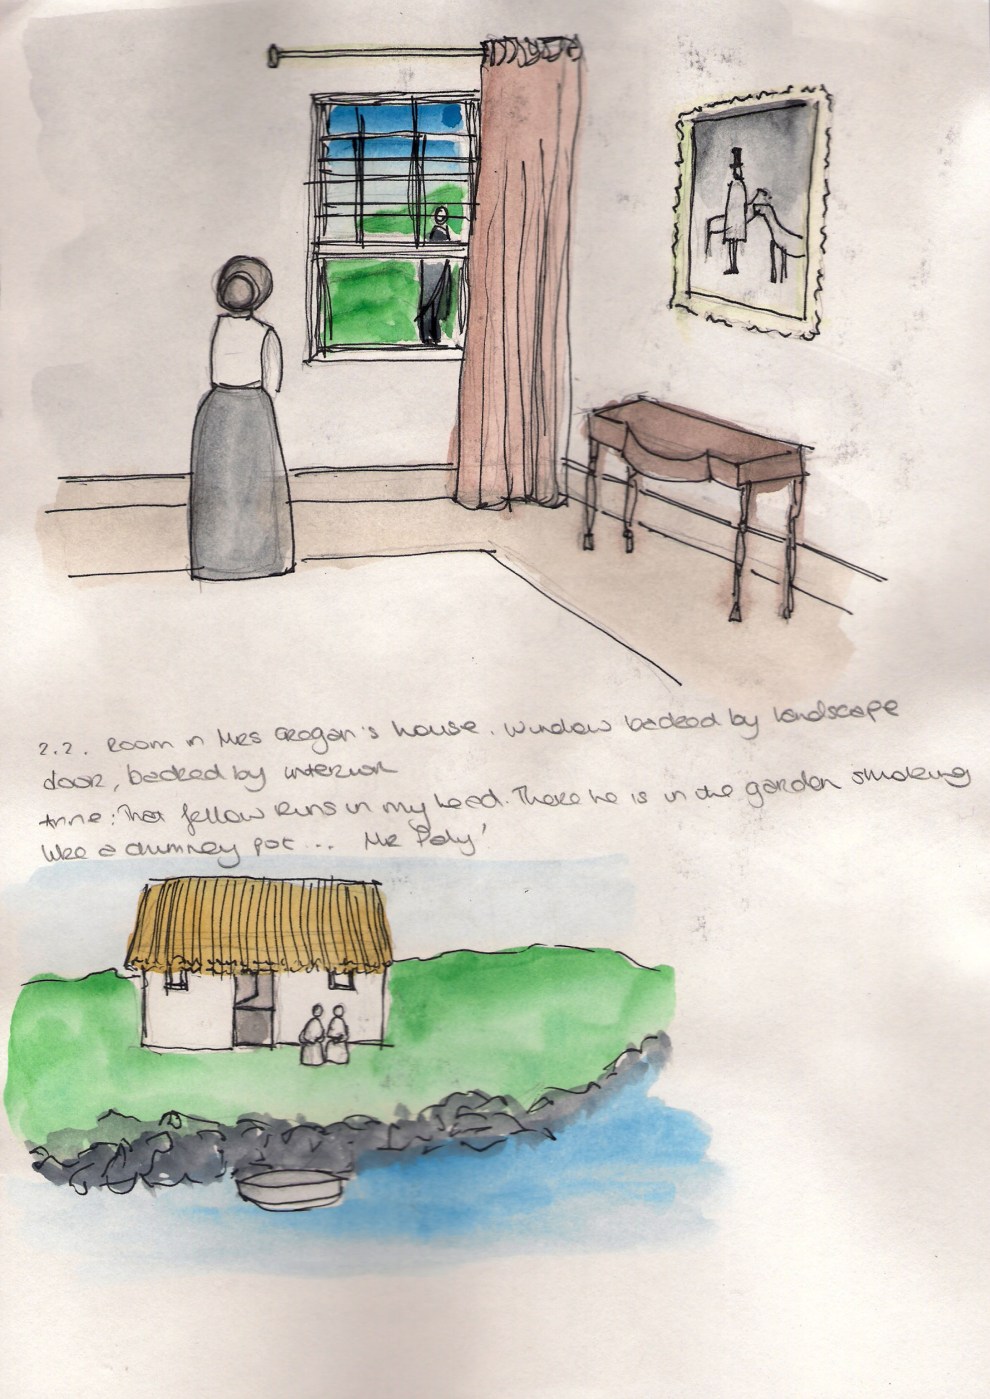 2.2. Room in Mrs Grogan's house. Window backed by landscape
door, backed by interior
Anne: That fellow runs in my head. There he is in the garden smoking
like a chimney pot ... Mr Daly'